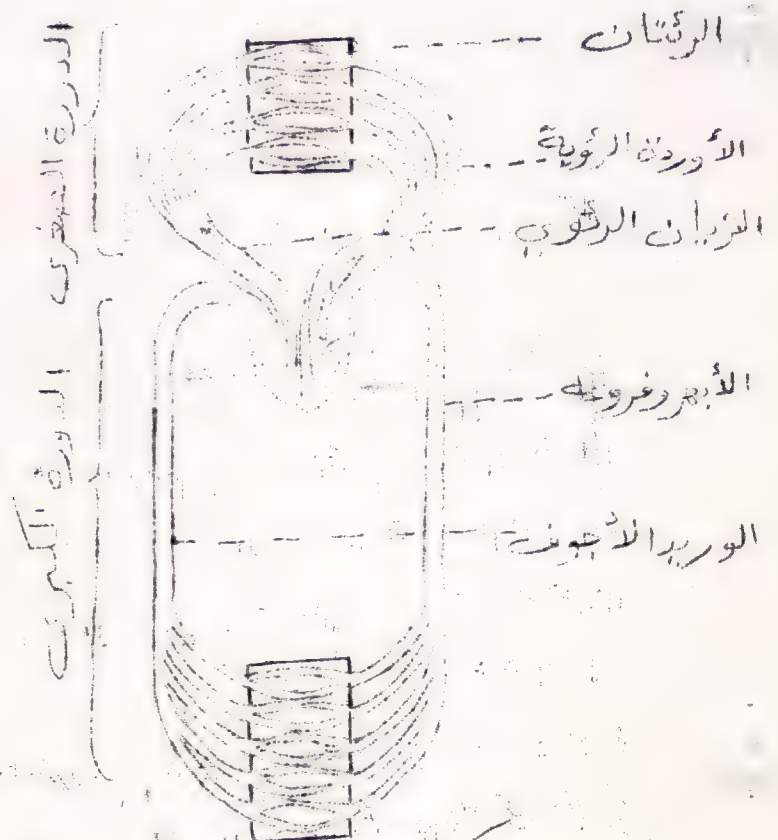 الرئتان
الأوردة الرئوية
الشريان الرئوي
الأبهر وفروعه
الوريد الأجوف
الدورة الصغرى
الدورة الكبرى